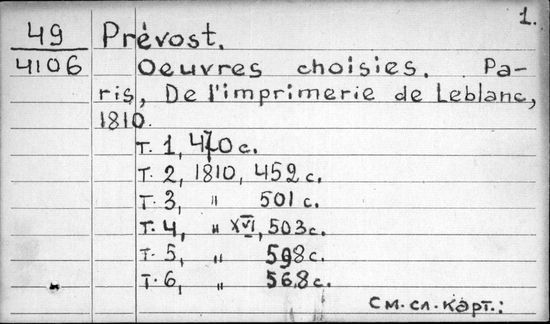 1.
49 Prévost.
4106 Oeuvres choisies. Pa-
ris, De l'imprimerie de Leblanc,
1810.
т. 1, 470 с.
т. 2, 1810, 452 с.
т. 3, " 501 с.
т. 4, " XVI, 503 с.
т. 5, " 598 с.
т. 6, " 568 с.
См. сл. карт.: